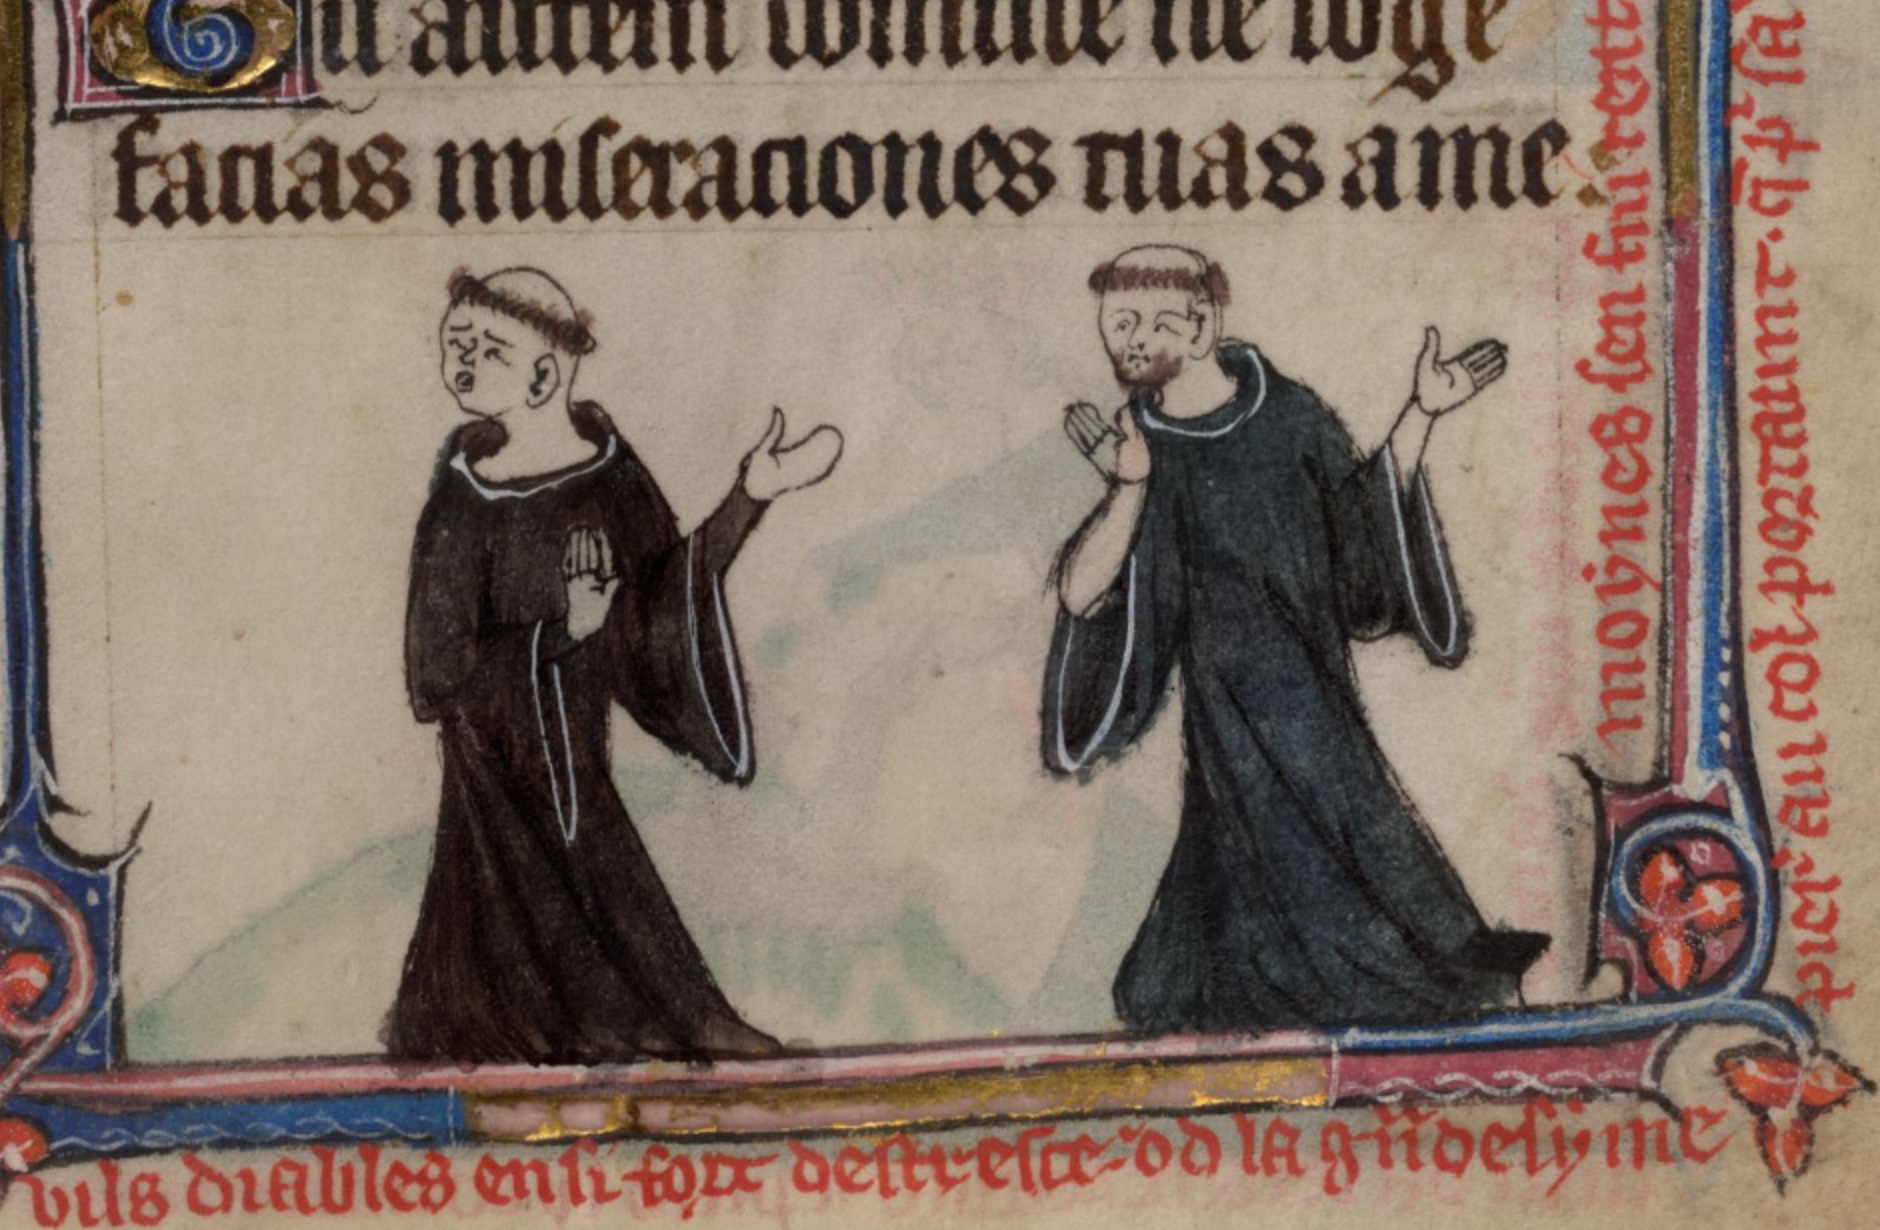 Tu autem domine ne loge
facias miseraciones tuas a me.
moynes sen fuirent
pier au col portaunt. q̄ pͥ sa
vils diables en si fort destresce. od la gn̄desyme